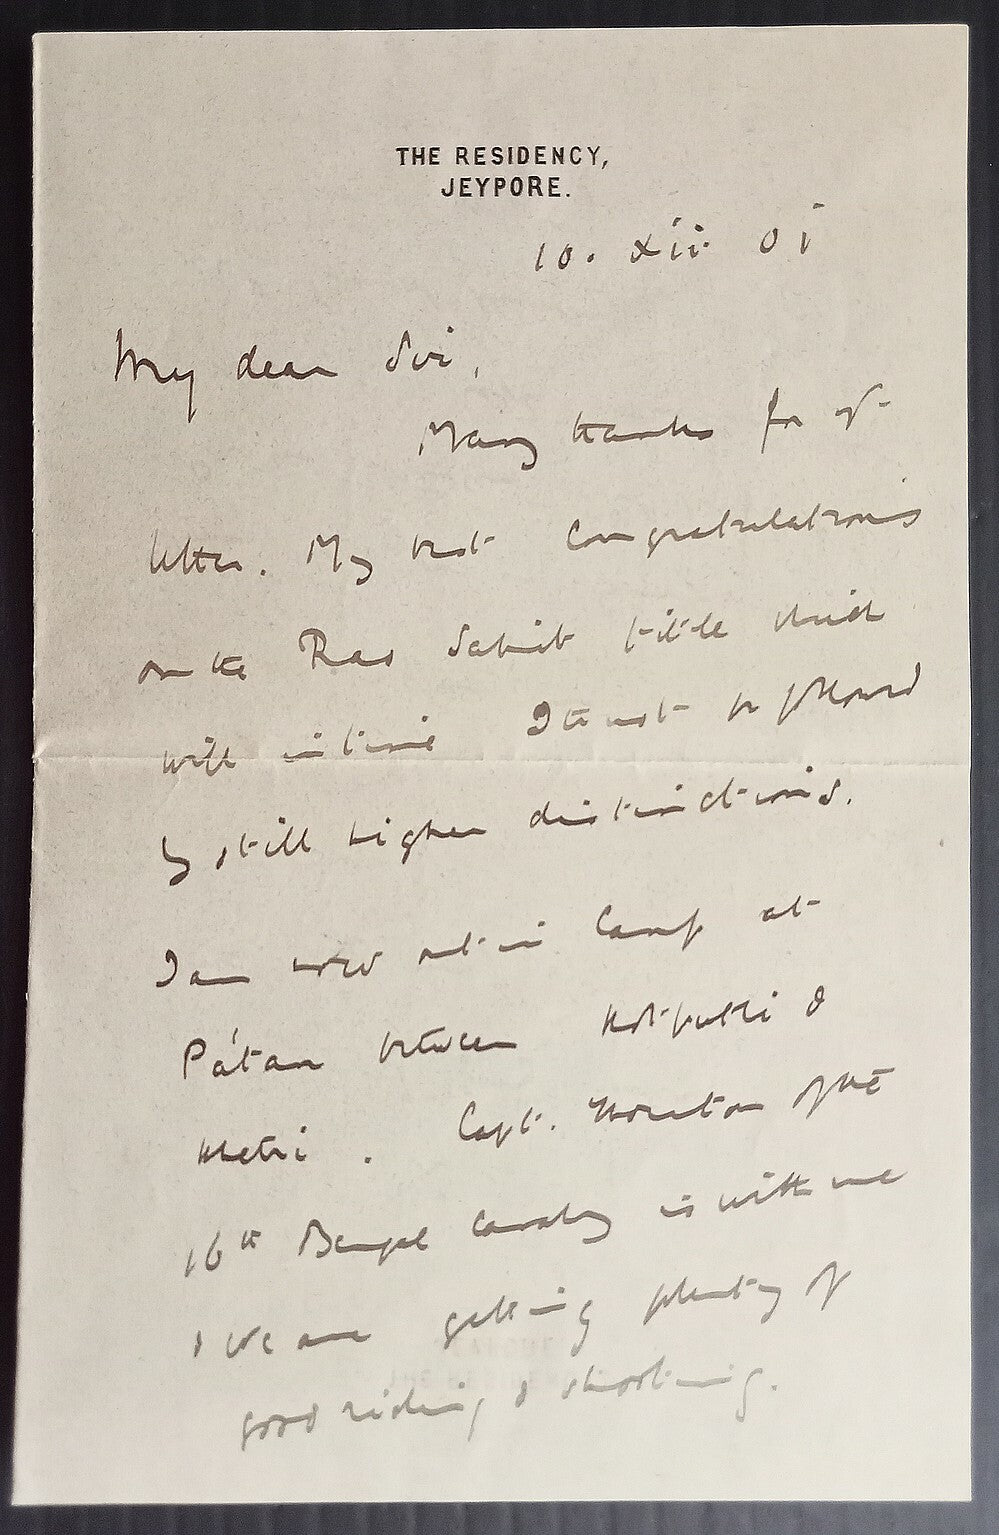 THE RESIDENCY,
JEYPORE.
10. xii. 01
My dear Sir,
Many thanks for yr
letter. My best congratulations
on the Rao Sahib title which
will in time I trust be followed
by still higher distinctions.
I am now out in Camp at
Pátan between Kotputli &
Khetri. Capt. Thornton of the
16th Bengal Cavalry is with me
& we are getting plenty of
good riding & shooting.